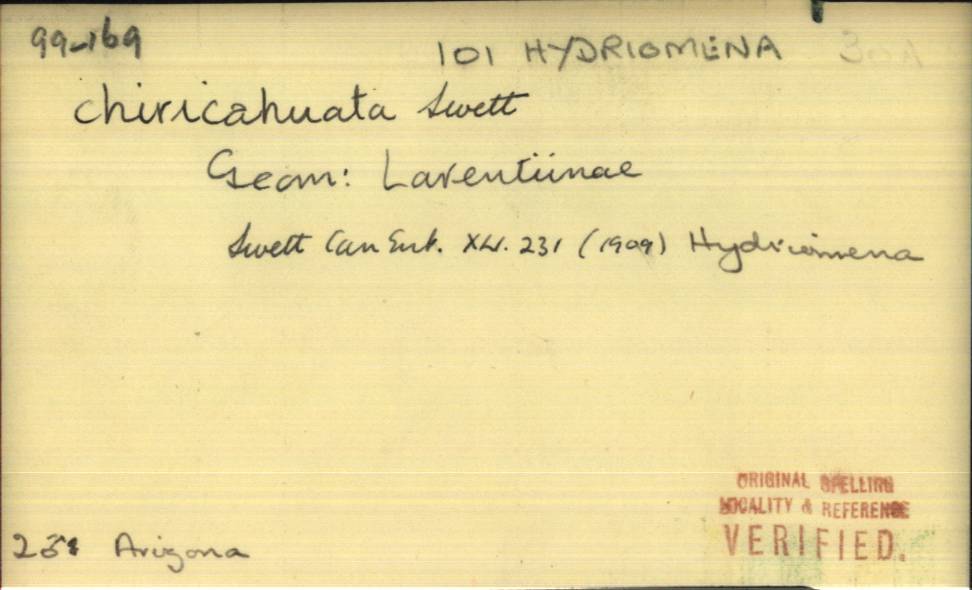 99-169
101 HYDRIOMENA 30A
chiricahuata Swett
Geom: Larentiinae
Swett Can Ent. XLI. 231 (1909) Hydriomena
ORIGINAL SPELLING
LOCALITY & REFERENCE
VERIFIED.
Arizona